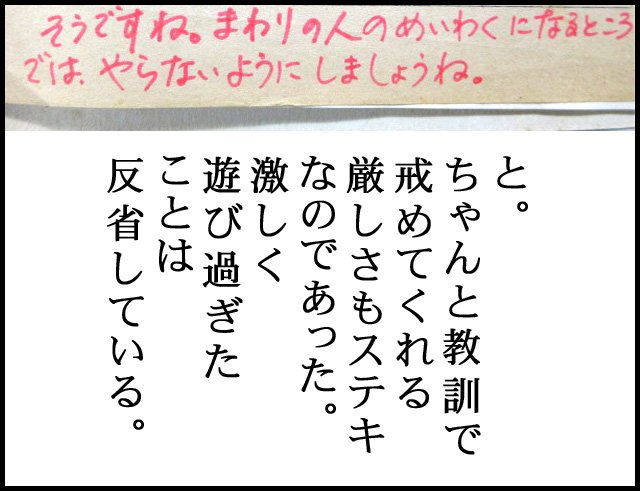 そうですね。まわりの人のめいわくになるところ
では、やらないようにしましょうね。
と。
ちゃんと教訓で
戒めてくれる
厳しさもステキ
なのであった。
激しく
遊び過ぎた
ことは
反省している。